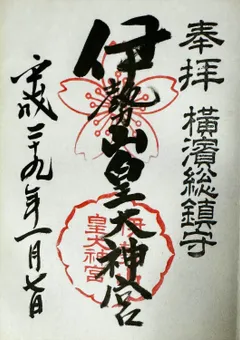 奉拝 横濱総鎮守
伊勢山皇大神宮
平成二十九年一月七日
皇大神宮